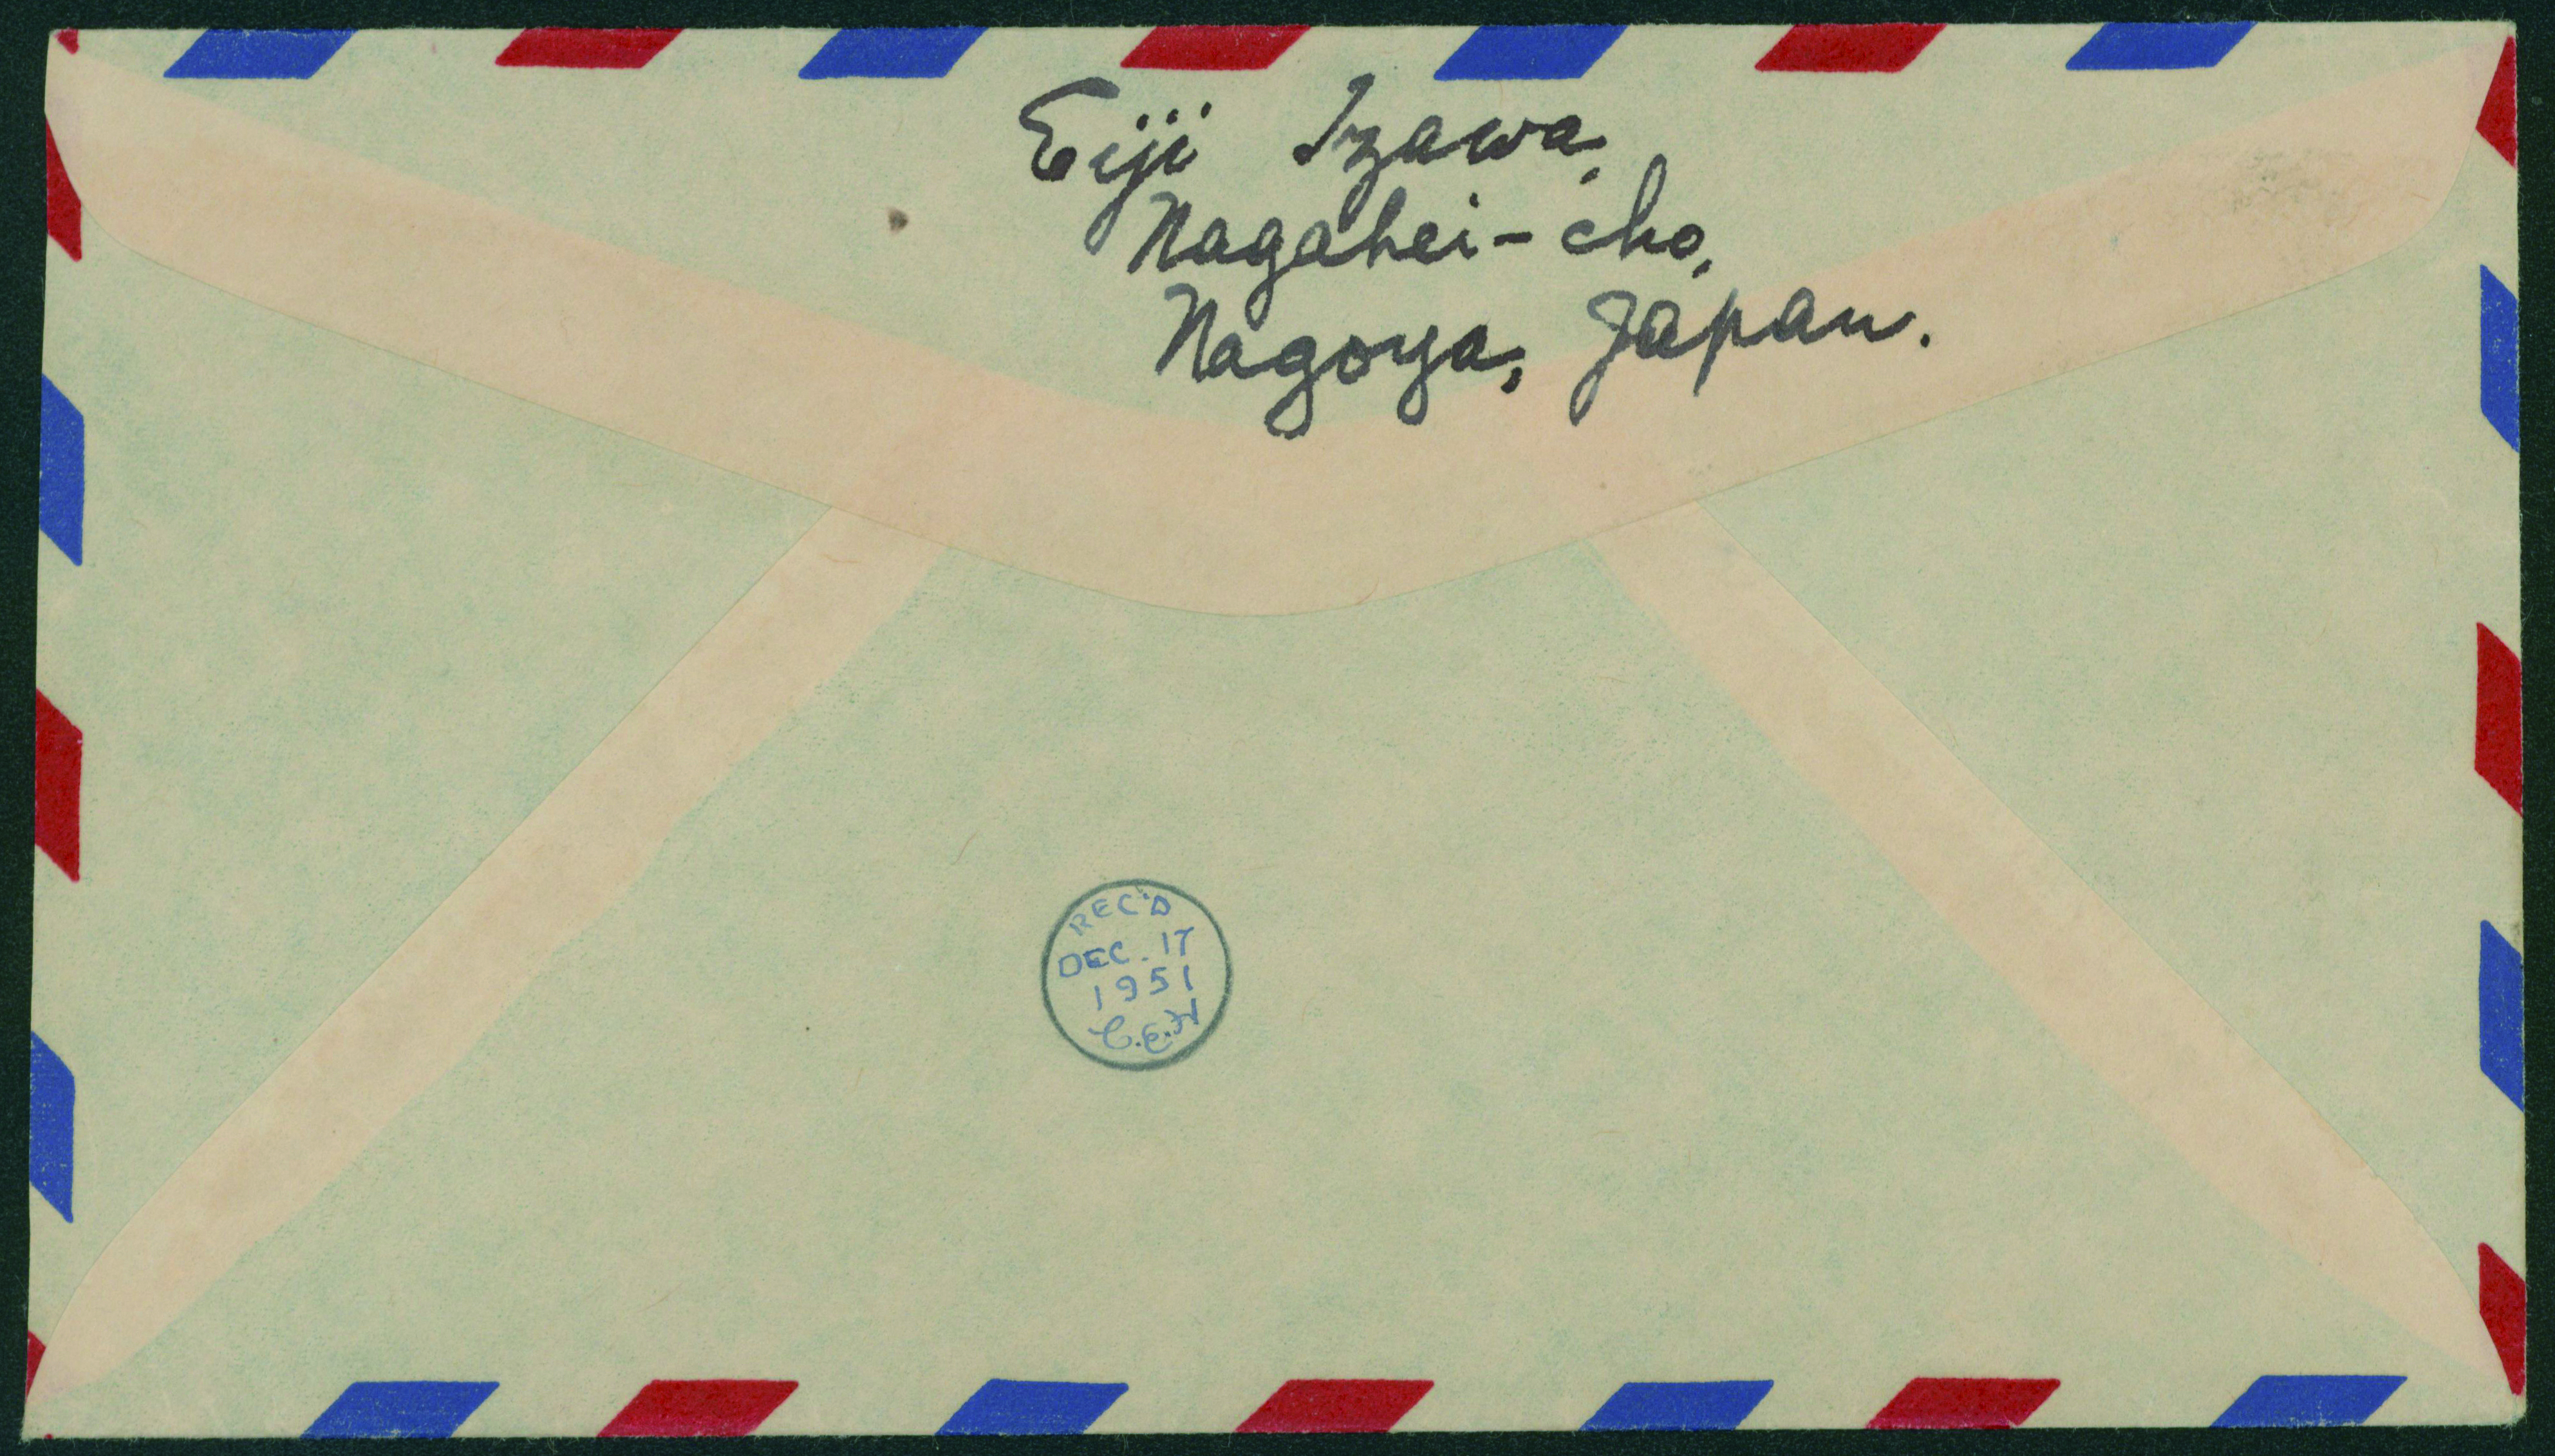 Eiji Izawa,
Nagahei-cho,
Nagoya, Japan.
REC'D
DEC. 17
1951
C.E.H